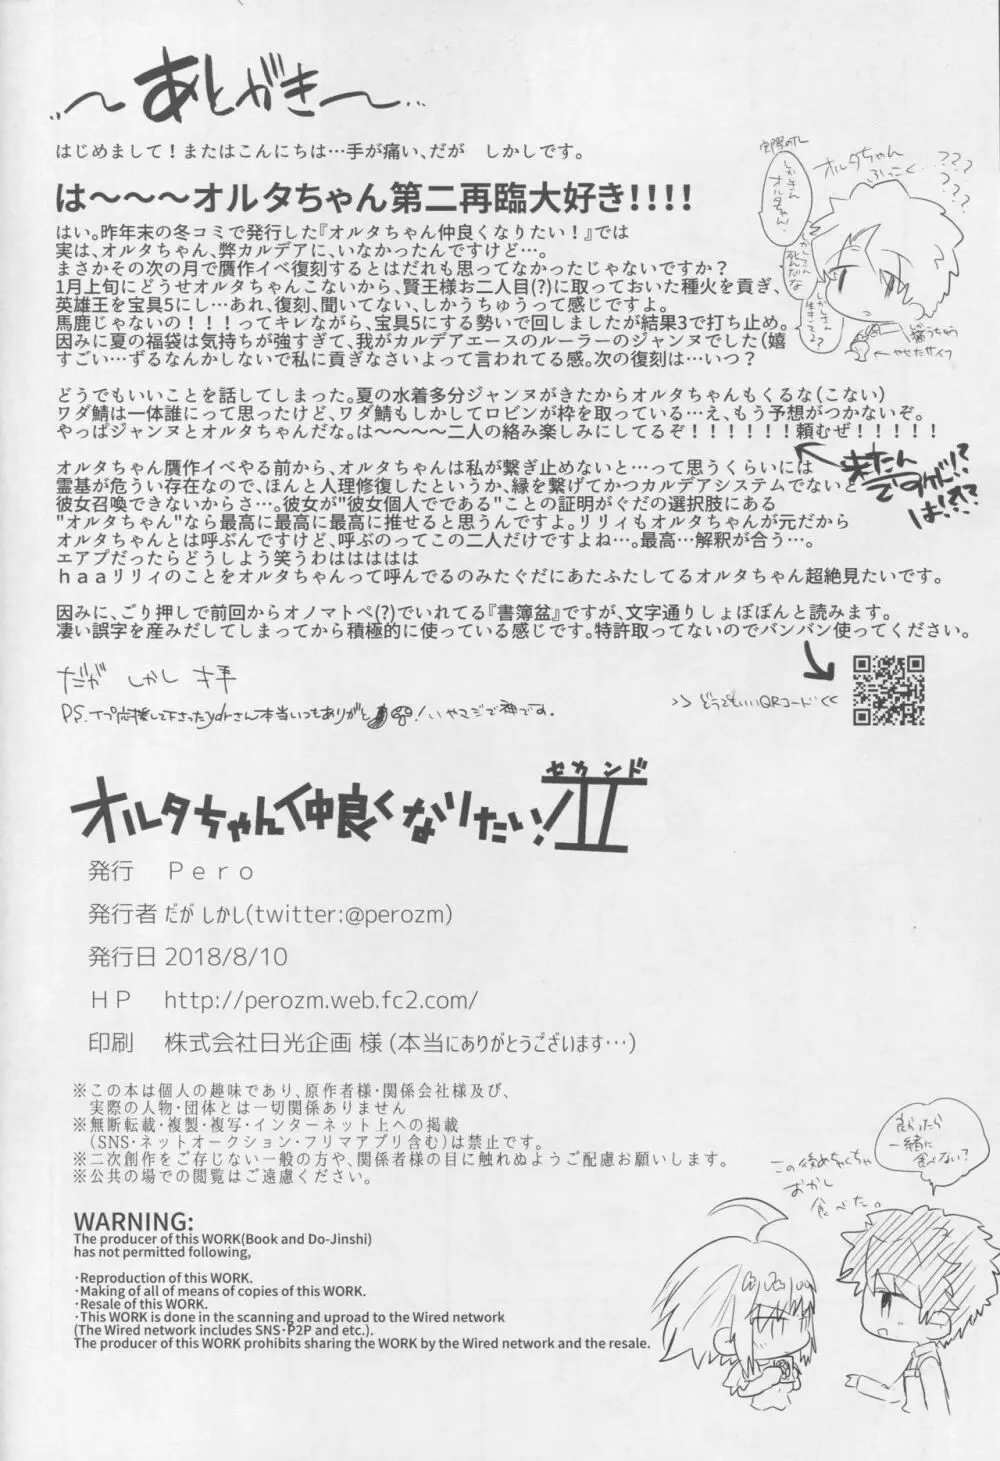 〜あとがき〜
はじめまして！またはこんにちは…手が痛い、だが　しかしです。
は〜〜〜オルタちゃん第二再臨大好き！！！！
はい。昨年末の冬コミで発行した『オルタちゃん仲良くなりたい！』では
実は、オルタちゃん、弊カルデアに、いなかったんですけど…。
まさかその次の月で贋作イベ復刻するとはだれも思ってなかったじゃないですか？
1月上旬にどうせオルタちゃんこないから、賢王様お二人目(?)に取っておいた種火を貢ぎ、
英雄王を宝具5にし…あれ、復刻、聞いてない、しかうちゅうって感じですよ。
馬鹿じゃないの！！！ってキレながら、宝具5にする勢いで回しましたが結果3で打ち止め。
因みに夏の福袋は気持ちが強すぎて、我がカルデアエースのルーラーのジャンヌでした(嬉
すごい…ずるなんかしないで私に貢ぎなさいよって言われてる感。次の復刻は…いつ？
どうでもいいことを話してしまった。夏の水着多分ジャンヌがきたからオルタちゃんもくるな(こない)
ワダ鯖は一体誰にって思ったけど、ワダ鯖もしかしてロビンが枠を取っている…え、もう予想がつかないぞ。
やっぱジャンヌとオルタちゃんだな。は〜〜〜〜二人の絡み楽しみにしてるぞ！！！！！！頼むぜ！！！！！
来たん
ですが!!?
は!?!?
オルタちゃん贋作イベやる前から、オルタちゃんは私が繋ぎ止めないと…って思うくらいには
霊基が危うい存在なので、ほんと人理修復したというか、縁を繋げてかつカルデアシステムでないと
彼女召喚できないからさ…。彼女が"彼女個人でである"ことの証明がぐだの選択肢にある
"オルタちゃん"なら最高に最高に最高に推せると思うんですよ。リリィもオルタちゃんが元だから
オルタちゃんとは呼ぶんですけど、呼ぶのってこの二人だけですよね…。最高…解釈が合う…。
エアプだったらどうしよう笑うわはははは
ｈａａリリィのことをオルタちゃんって呼んでるのみたぐだにあたふたしてるオルタちゃん超絶見たいです。
因みに、ごり押しで前回からオノマトペ(?)でいれてる『書簿盆』ですが、文字通りしょぼぼんと読みます。
凄い誤字を産みだしてしまってから積極的に使っている感じです。特許取ってないのでバンバン使ってください。
だが しかし 拝
>> どうでもいいQRコード <<
オルタちゃん仲良くなりたい！II
セカンド
発行　Ｐｅｒｏ
発行者 だが しかし(twitter:@perozm)
発行日 2018/8/10
ＨＰ　http://perozm.web.fc2.com/
印刷　株式会社日光企画 様 (本当にありがとうございます…)
※この本は個人の趣味であり、原作者様・関係会社様及び、
実際の人物・団体とは一切関係ありません
※無断転載・複製・複写・インターネット上への掲載
(SNS・ネットオークション・フリマアプリ含む)は禁止です。
※二次創作をご存じない一般の方や、関係者様の目に触れぬようご配慮お願いします。
※公共の場での閲覧はご遠慮ください。
もらったら
一緒に
食べない？
この後めちゃくちゃ
おかし
食べた。
WARNING:
The producer of this WORK(Book and Do-Jinshi)
has not permitted following,
・Reproduction of this WORK.
・Making of all of means of copies of this WORK.
・Resale of this WORK.
・This WORK is done in the scanning and uproad to the Wired network
(The Wired network includes SNS・P2P and etc.).
The producer of this WORK prohibits sharing the WORK by the Wired network and the resale.